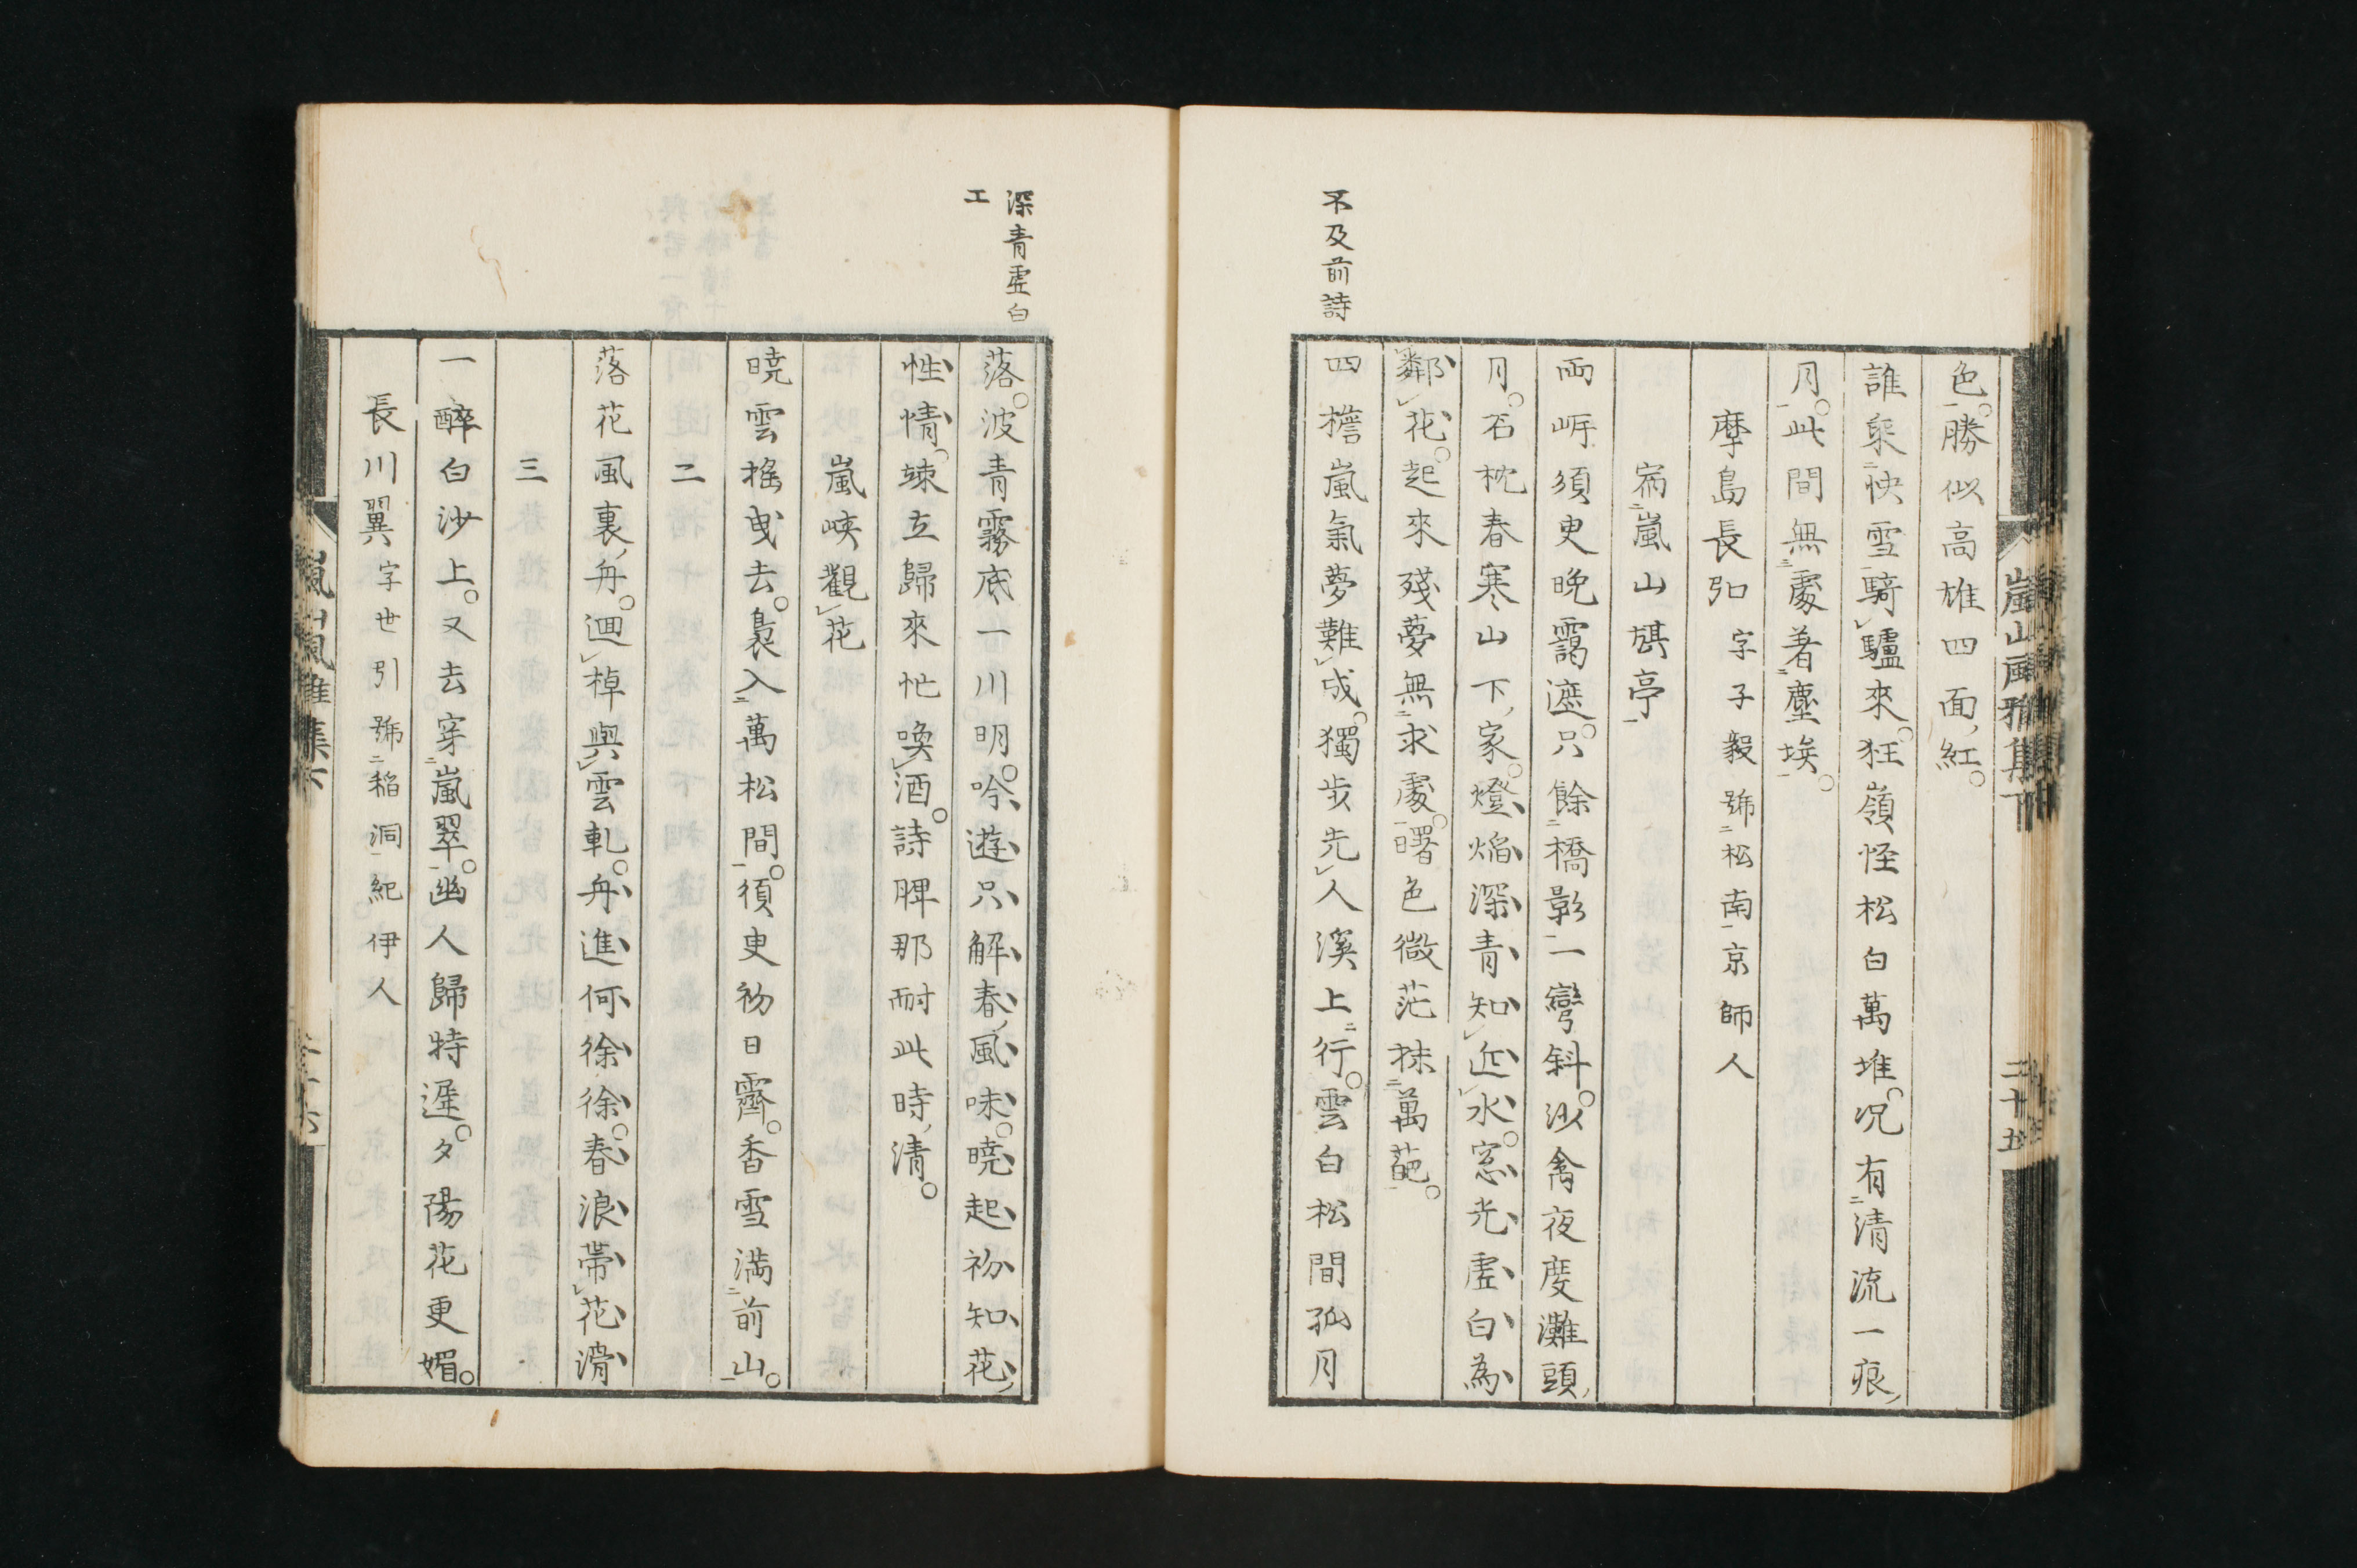 不及前詩
色。勝似高雄四面紅。
誰乘快雪騎驢來。狂嶺怪松白萬堆。況有清流一痕
月。此間無處著塵埃。
摩島長弘字子毅號松南京師人
宿嵐山旗亭
兩岍須臾晚靄遮。只餘橋影一彎斜。沙禽夜度灘頭
月。石枕春寒山下家。燈焔深青知近水。窓光虛白為
鄰花。起來殘夢無求處。曙色微茫抹萬葩。
四檐嵐氣夢難成。獨步先人溪上行。雲白松間孤月
嵐山風雅集下
二十五
深青虛白
工
落。波青霧底一川明。吟遊只解春風味。曉起初知花
性情。竦立歸來忙喚酒。詩脾那耐此時清。
嵐峽觀花
曉雲搖曳去。裊入萬松間。須臾初日霽。香雪滿前山。
二
落花風裏舟。迴棹與雲軋。舟進何徐徐。春浪帶花滑
三
一醉白沙上。又去穿嵐翠。幽人歸特遲。夕陽花更媚。
長川翼字世引號稻洞紀伊人